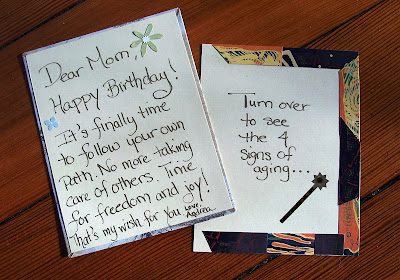 Dear Mom,
Happy Birthday!
It's finally time
to follow your own
Path. No more taking
care of others. Time
for freedom and joy!
That's my wish for you Love,
Andrea
Turn over
to see
the 4
signs of
aging...